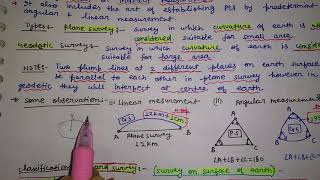 It also includes the art of establishing pts by predetermin
angular & linear measurement
Types:- Plane survey:- survey in which curvature of earth is
considered suitable for small area.
Geodetic survey:- survey in which curvature of earth is considered
suitable for large area
NOTE:- Two plumb lines @ 2 different places on earth surface
to parallel to each other in plane survey however in
geodetic they will intersect at centre of earth.
* Some observation:- (i) Linear measurement (ii) Angular measurement
G.S
12km + 1cm
A
B
Plane survey
12km
P.S
A
B
C
∠A+∠B+∠C=180
∠A+∠B+
survey:- (survey on surface of earth)